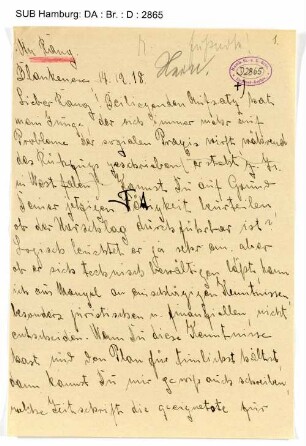 SUB Hamburg: DA : Br. : D : 2865
An Rang
1.
D2865
Blankenese 14.12.18
Lieber Rang! Beiliegenden Aufsatz hat
mein Junge, der sich immer mehr auf
Probleme der sozialen Praxis wirft während
des Rückzugs geschrieben (er steht z. Zt.
in Westfalen). Kannst Du auf Grund
Deiner jetzigen Tätigkeit beurteilen
ob der Vorschlag durchführbar ist?
Logisch leuchtet er ja sehr ein. aber
ob er sich technisch bewältigen läßt, kann
ich aus Mangel an einschlägigen Kenntnissen,
besonders juristischen u. finanziellen, nicht
entscheiden. Wenn Du diese Kenntnisse
hast und den Plan für tunlichst hältst,
dann kannst Du mir gewiß auch schreiben,
welche Zeitschrift die geeignetste für